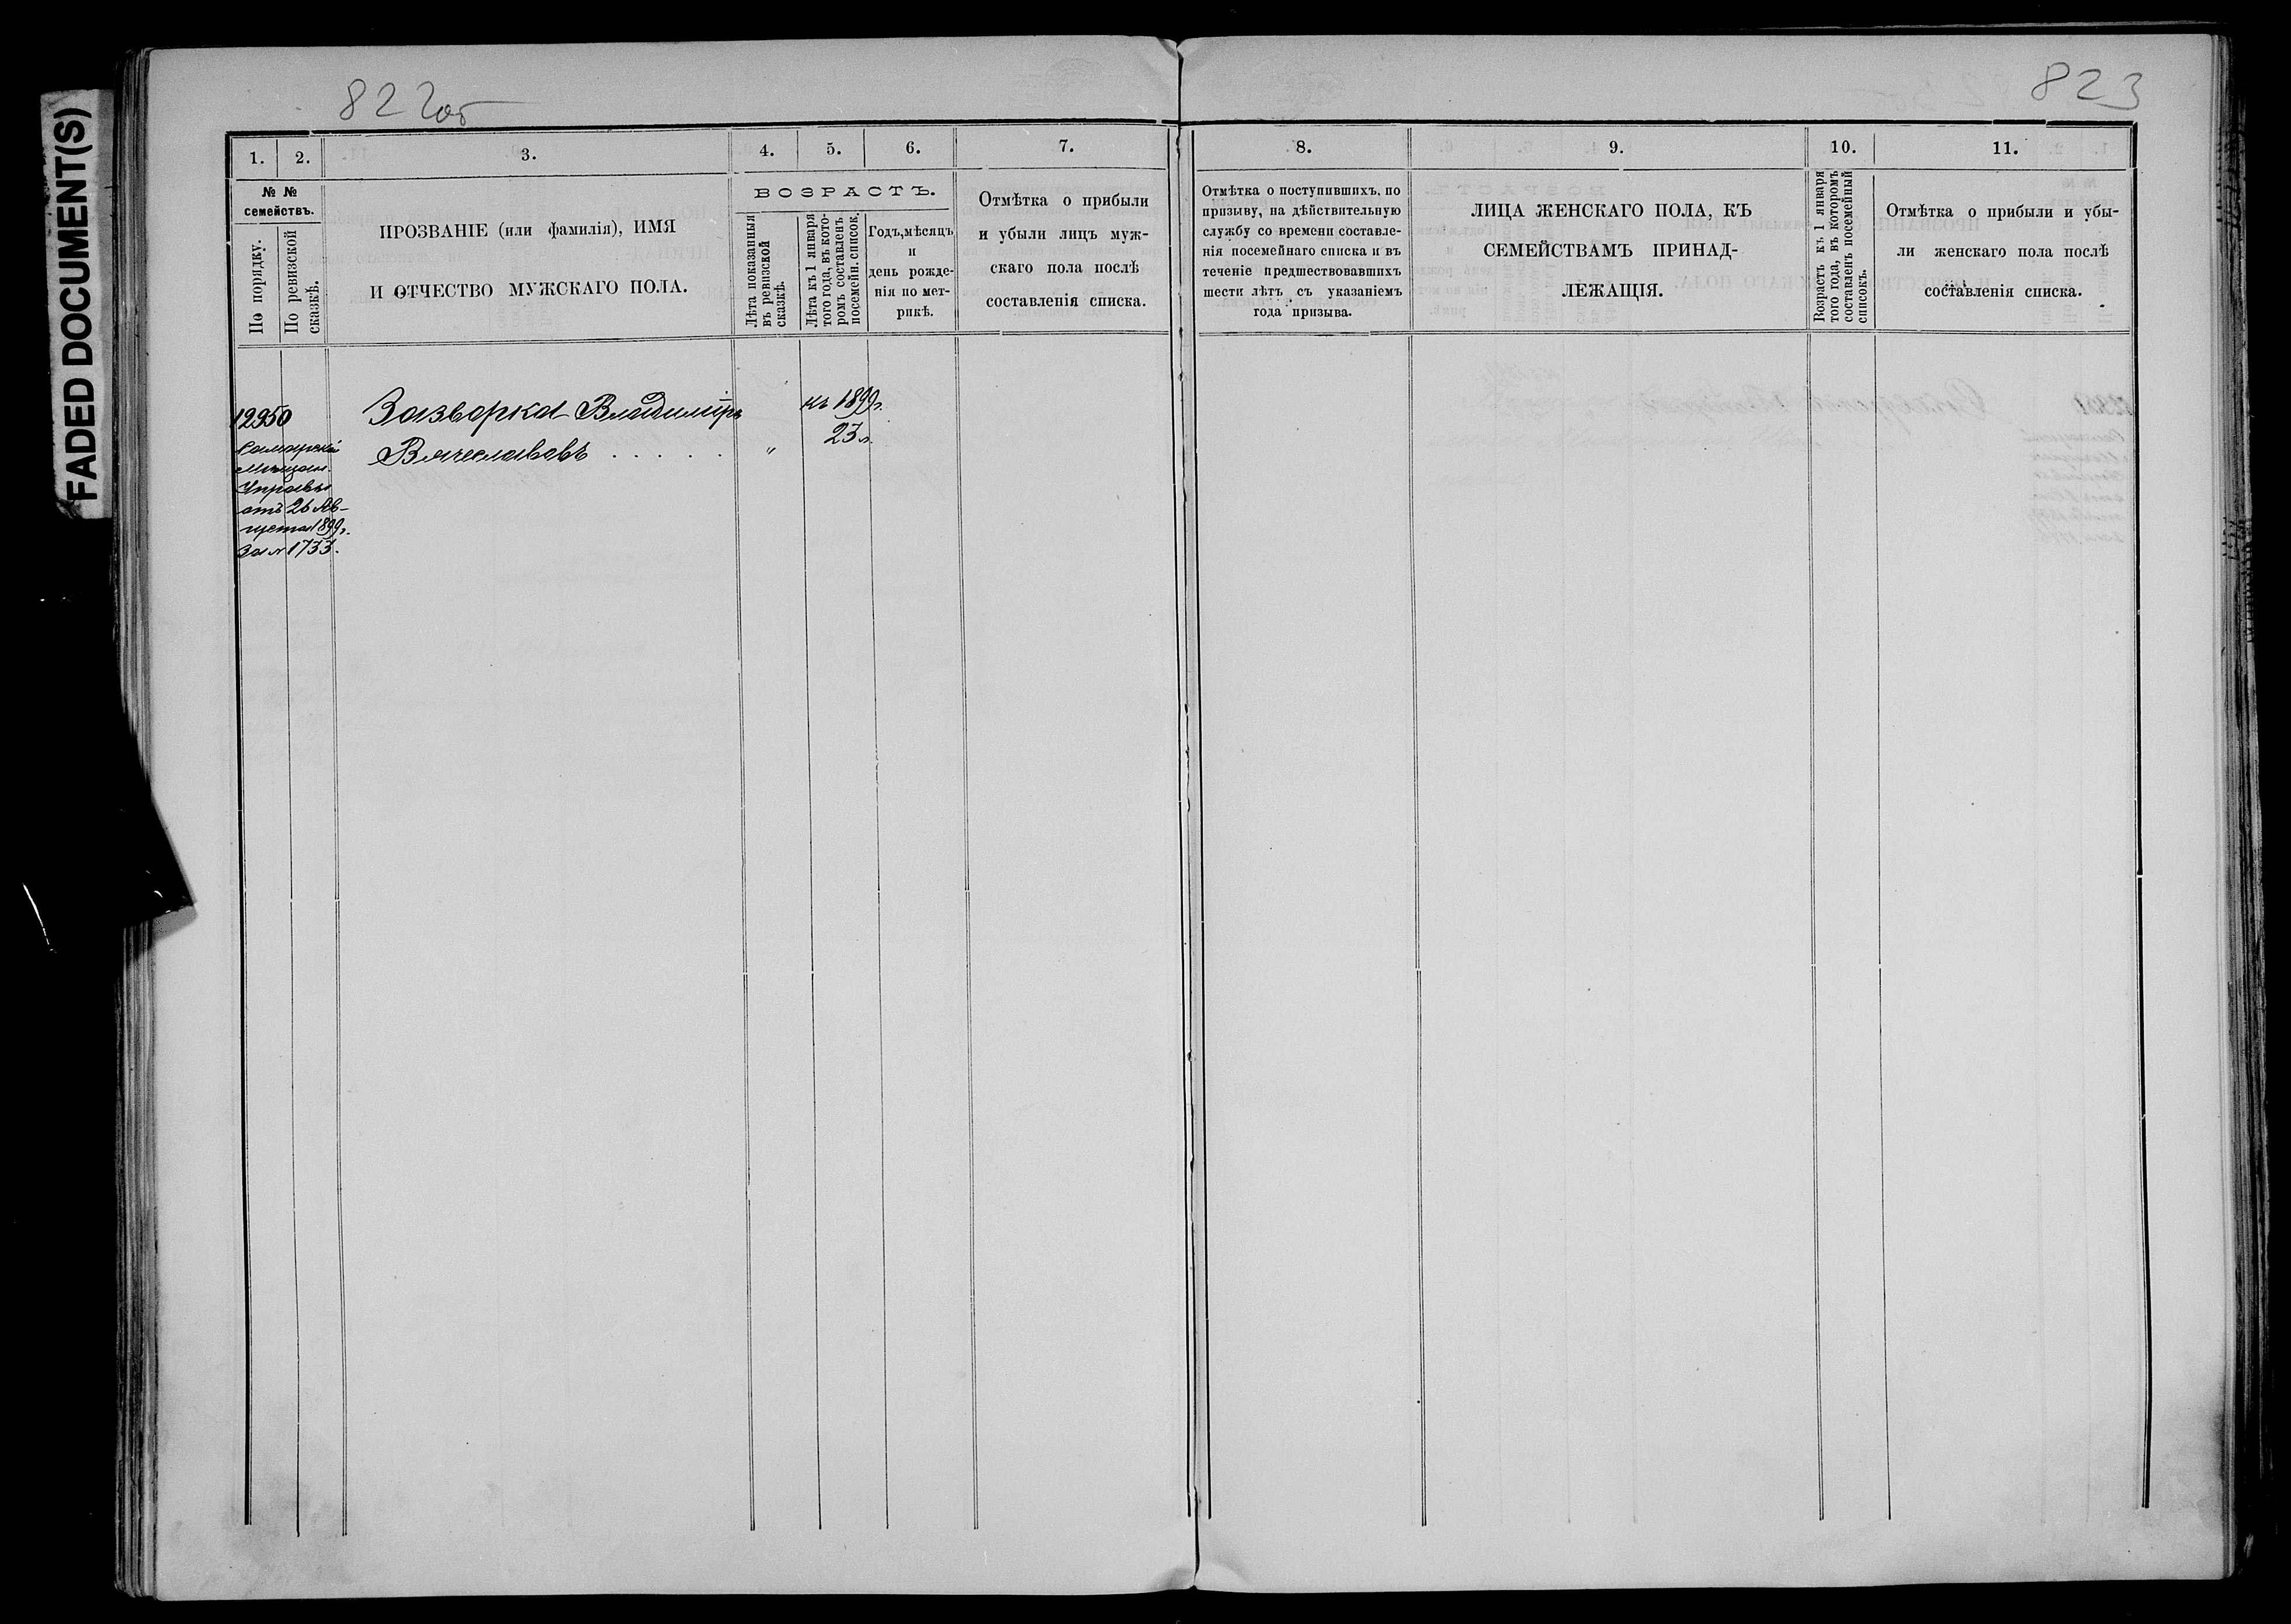 FADED DOCUMENT(S)
822об
823
1.
2.
3.
4.
5.
6.
7.
8.
9.
10.
11.
№ №
семействъ.
По порядку.
По ревизской
сказкѣ.
ПРОЗВАНІЕ (или фамилія), ИМЯ
И ОТЧЕСТВО МУЖСКАГО ПОЛА.
ВОЗРАСТЪ.
Лѣта показанныя
въ ревизской
сказкѣ.
Лѣта къ 1 января
того года, въ кото-
ромъ составленъ
посемейн. список.
Годъ, мѣсяцъ
и
день рожде-
нія по мет-
рикѣ.
Отмѣтка о прибыли
и убыли лицъ муж-
скаго пола послѣ
составленія списка.
Отмѣтка о поступившихъ, по
призыву, на дѣйствительную
службу со времени составле-
нія посемейнаго списка и въ
теченіе предшествовавшихъ
шести лѣтъ съ указаніемъ
года призыва.
ЛИЦА ЖЕНСКАГО ПОЛА, КЪ
СЕМЕЙСТВАМЪ ПРИНАД-
ЛЕЖАЩІЯ.
Возрастъ къ 1 января
того года, въ которомъ
составленъ посемейный
списокъ.
Отмѣтка о прибыли и убы-
ли женскаго пола послѣ
составленія списка.
12950
Самарской
Мѣщан.
Управы
отъ 26 Ав-
густа 1899г.
За № 1733.
Зазворка Владиміръ
Вячеславовъ . . . . .
"
къ 1899г.
23 л.